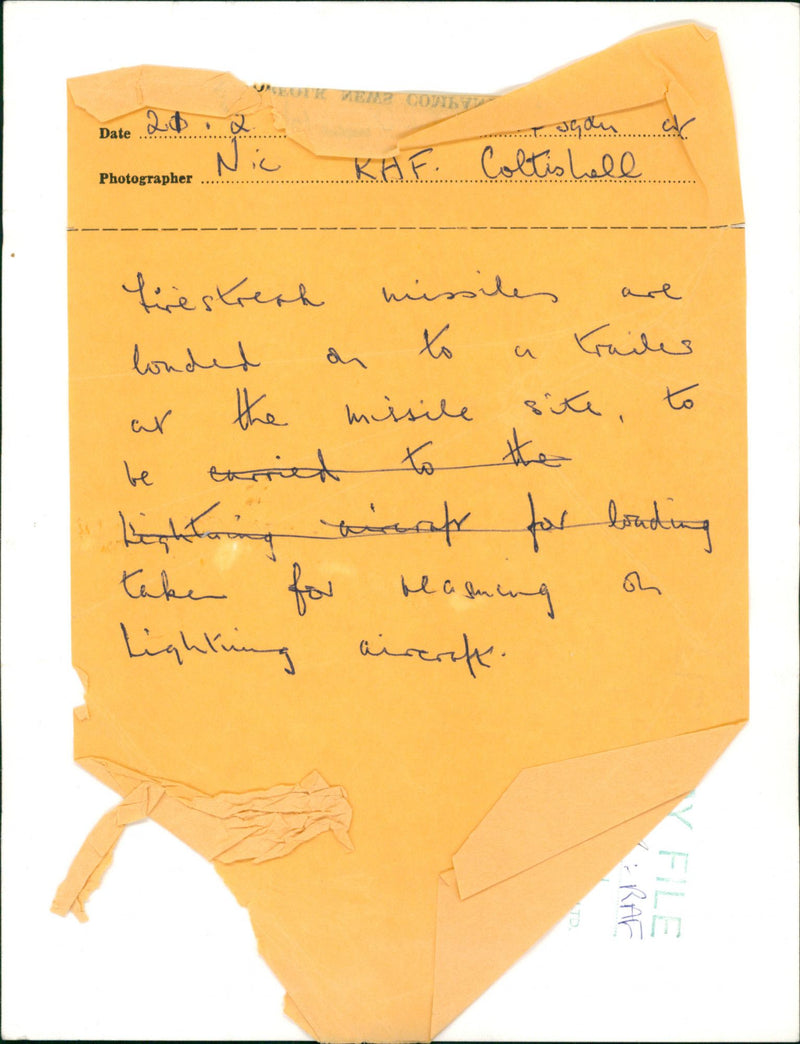 NORFOLK NEWS COMPAN
Date 20.2 sqdn at
Photographer Nic RAF. Coltishall
Firestreak missiles are
loaded on to a trailer
at the missile site, to
be carried to the
Lightning aircraft for loading
taken for rearming on
Lightning aircraft.
Y FILE
TD.
RAF